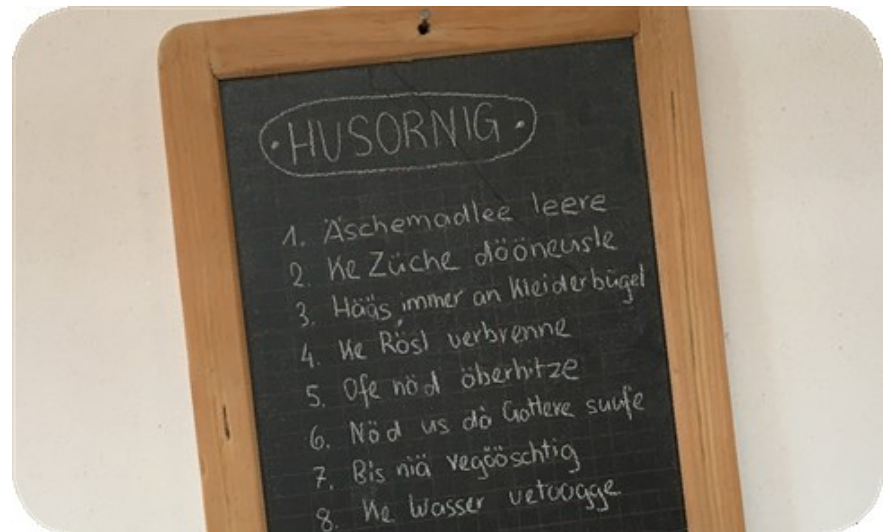 · HUSORNIG ·
1. Äschemadlee leere
2. Ke Züche dööneusle
3. Hääs immer an Kleiderbügel
4. Ke Rösl verbrenne
5. Ofe nöd öberhitze
6. Nöd us dä Gottere suufe
7. Bis niä vegööschtig
8. Ke Wasser vetoogge